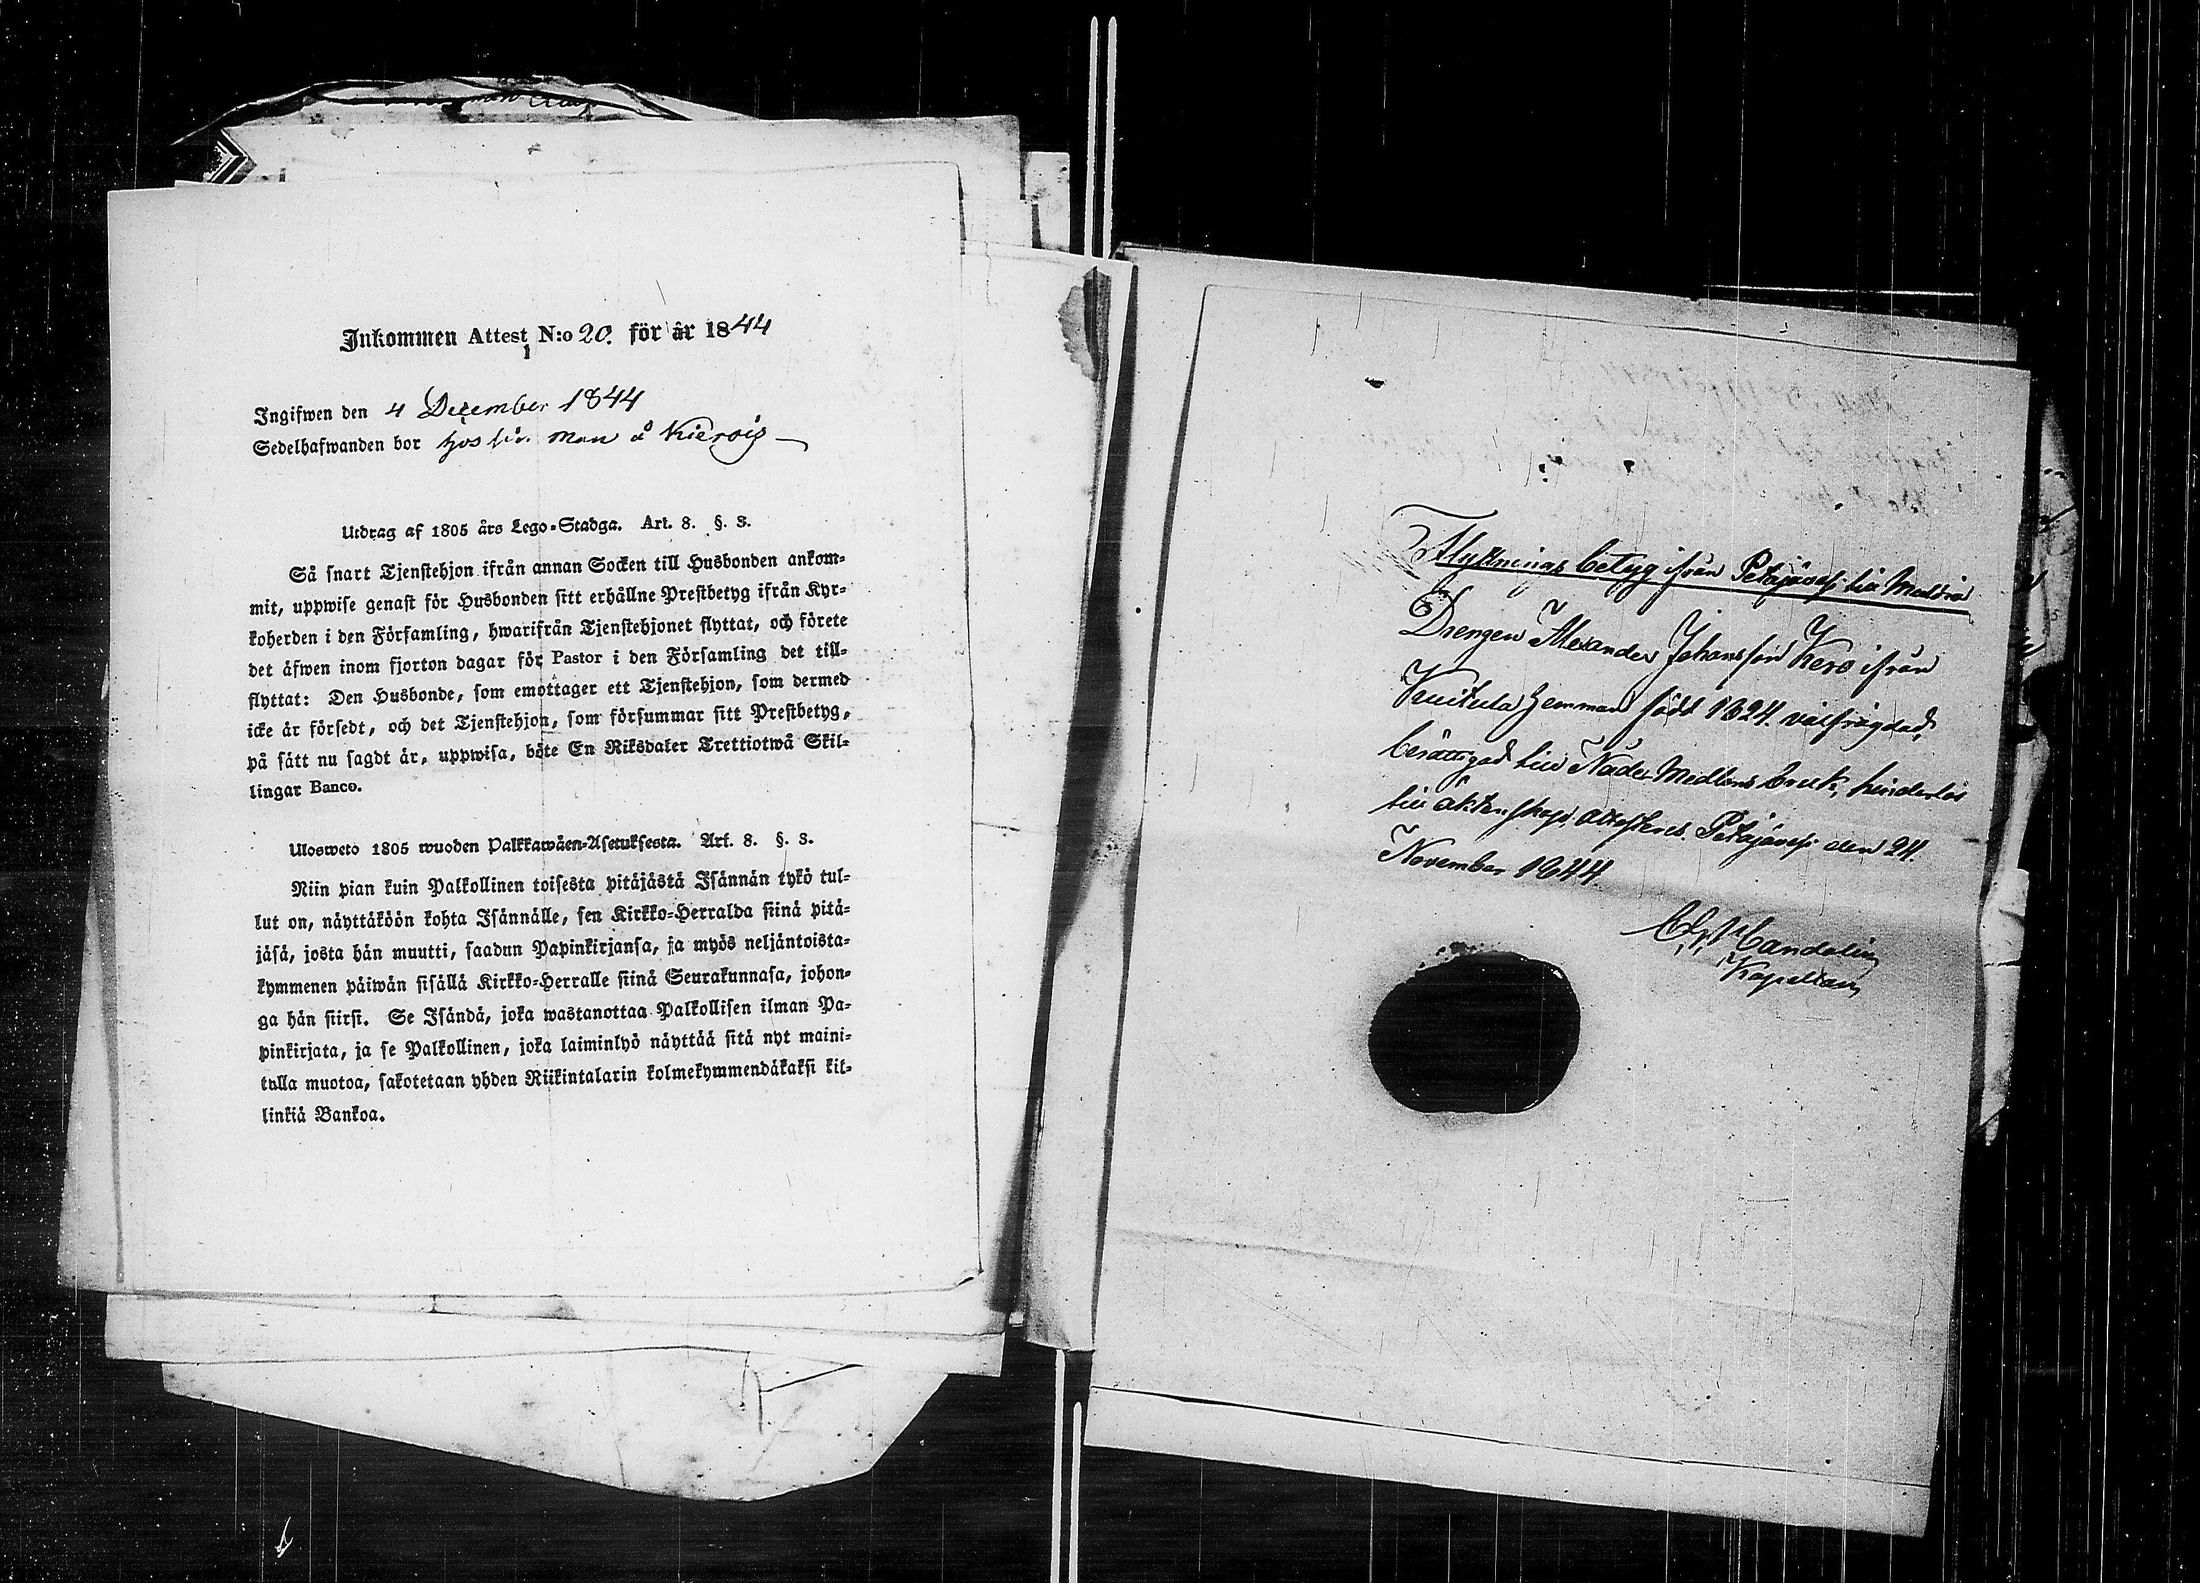 Inkommen Attest N:o 20. för år 1844
Ingifwen den 4 December 1844
Sedelhafwanden bor hos man å
Utdrag af 1805 års Lego-Stadga. Art. 8. §. 3.
Så snart Tjenstehjon ifrån annan Socken till Husbonden ankom-
mit, uppwise genast för Husbonden sitt erhållne Prestbetyg ifrån Kyr-
koherden i den Församling, hwarifrån Tjenstehjonet flyttat, och förete
det äfwen inom fjorton dagar för Pastor i den Församling det till-
flyttat: Den Husbonde, som emottager ett Tjenstehjon, som dermed
icke är försedt, och det Tjenstehjon, som försummar sitt Prestbetyg,
på sätt nu sagdt är, uppwisa, böte En Riksdaler Trettiotwå Skil-
lingar Banco.
Ulosweto 1805 wuoden Palkkawäen-Asetuksesta. Art. 8. §. 3.
Niin pian kuin Palkollinen toisesta pitäjästä Isännän tykö tul-
lut on, näyttäköön kohta Isännälle, sen Kirkko-Herralda siinä pitä-
jäsä, josta hän muutti, saadun Papinkirjansa, ja myös neljäntoista-
kymmenen päiwän sisällä Kirkko-Herralle siinä Seurakunnasa, johon-
ga hän siirsi. Se Isändä, joka wastanottaa Palkollisen ilman Pa-
pinkirjata, ja se Palkollinen, joka laiminlyö näyttää sitä nyt maini-
tulla muotoa, sakotetaan yhden Riikintalarin kolmekymmendäkaksi kil-
linkiä Bankoa.
Flyttnings betyg ifrån Petäjäves: till
Drengen Alexander Johansson Kero ifrån
hemman född 1824. välfrägdad,
berättigad till Nåde Medlens bruk, hinderlös
till äktenskap, attesteras. Petäjäves: den 24.
November 1844.
Candelin
Kapellan